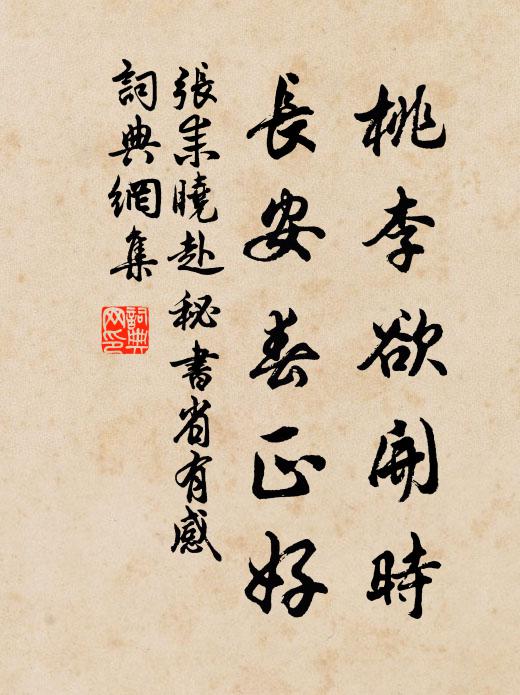 桃李欲開時
長安春正好
張耒曉赴秘書省有感
詞典網集
詞典网印